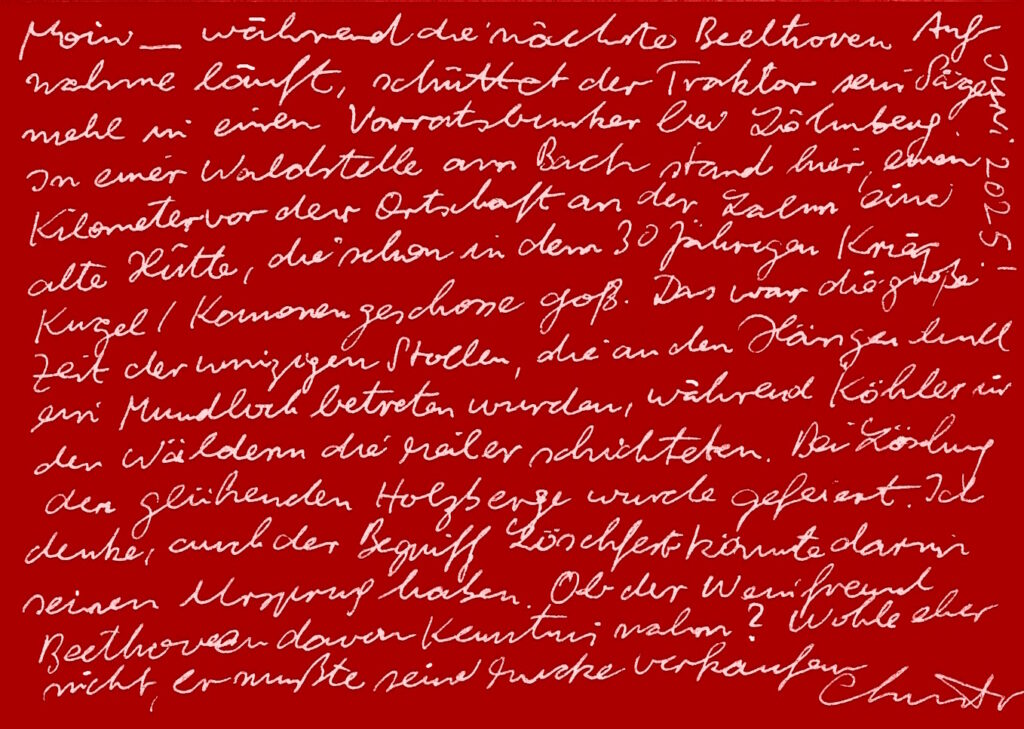 Moin _ während die nächste Beethoven Auf
nahme läuft, schüttet der Traktor sein Säge
mehl in einen Vorratsbunker bei Löhnberg.
In einer Waldstelle am Bach stand hier, einen
Kilometer vor der Ortschaft an der Lahn eine
alte Hütte, die schon in dem 30 Jährigen Krieg
Kugel / Kanonengeschosse goß. Das war die große
Zeit der winzigen Stollen, die an den Hängen
ein Mundloch betreten wurden, während Köhler in
den Wäldern die Meiler schichteten. Bei Löschung
der glühenden Holzberge wurde gefeiert. Ich
denke, auch der Begriff Löschfest könnte darin
seinen Ursprung haben. Ob der Weinfreund
Beethoven davon Kenntnis nahm? Wohl eher
nicht, er mußte seine Mucke verkaufen
Juni 2025!